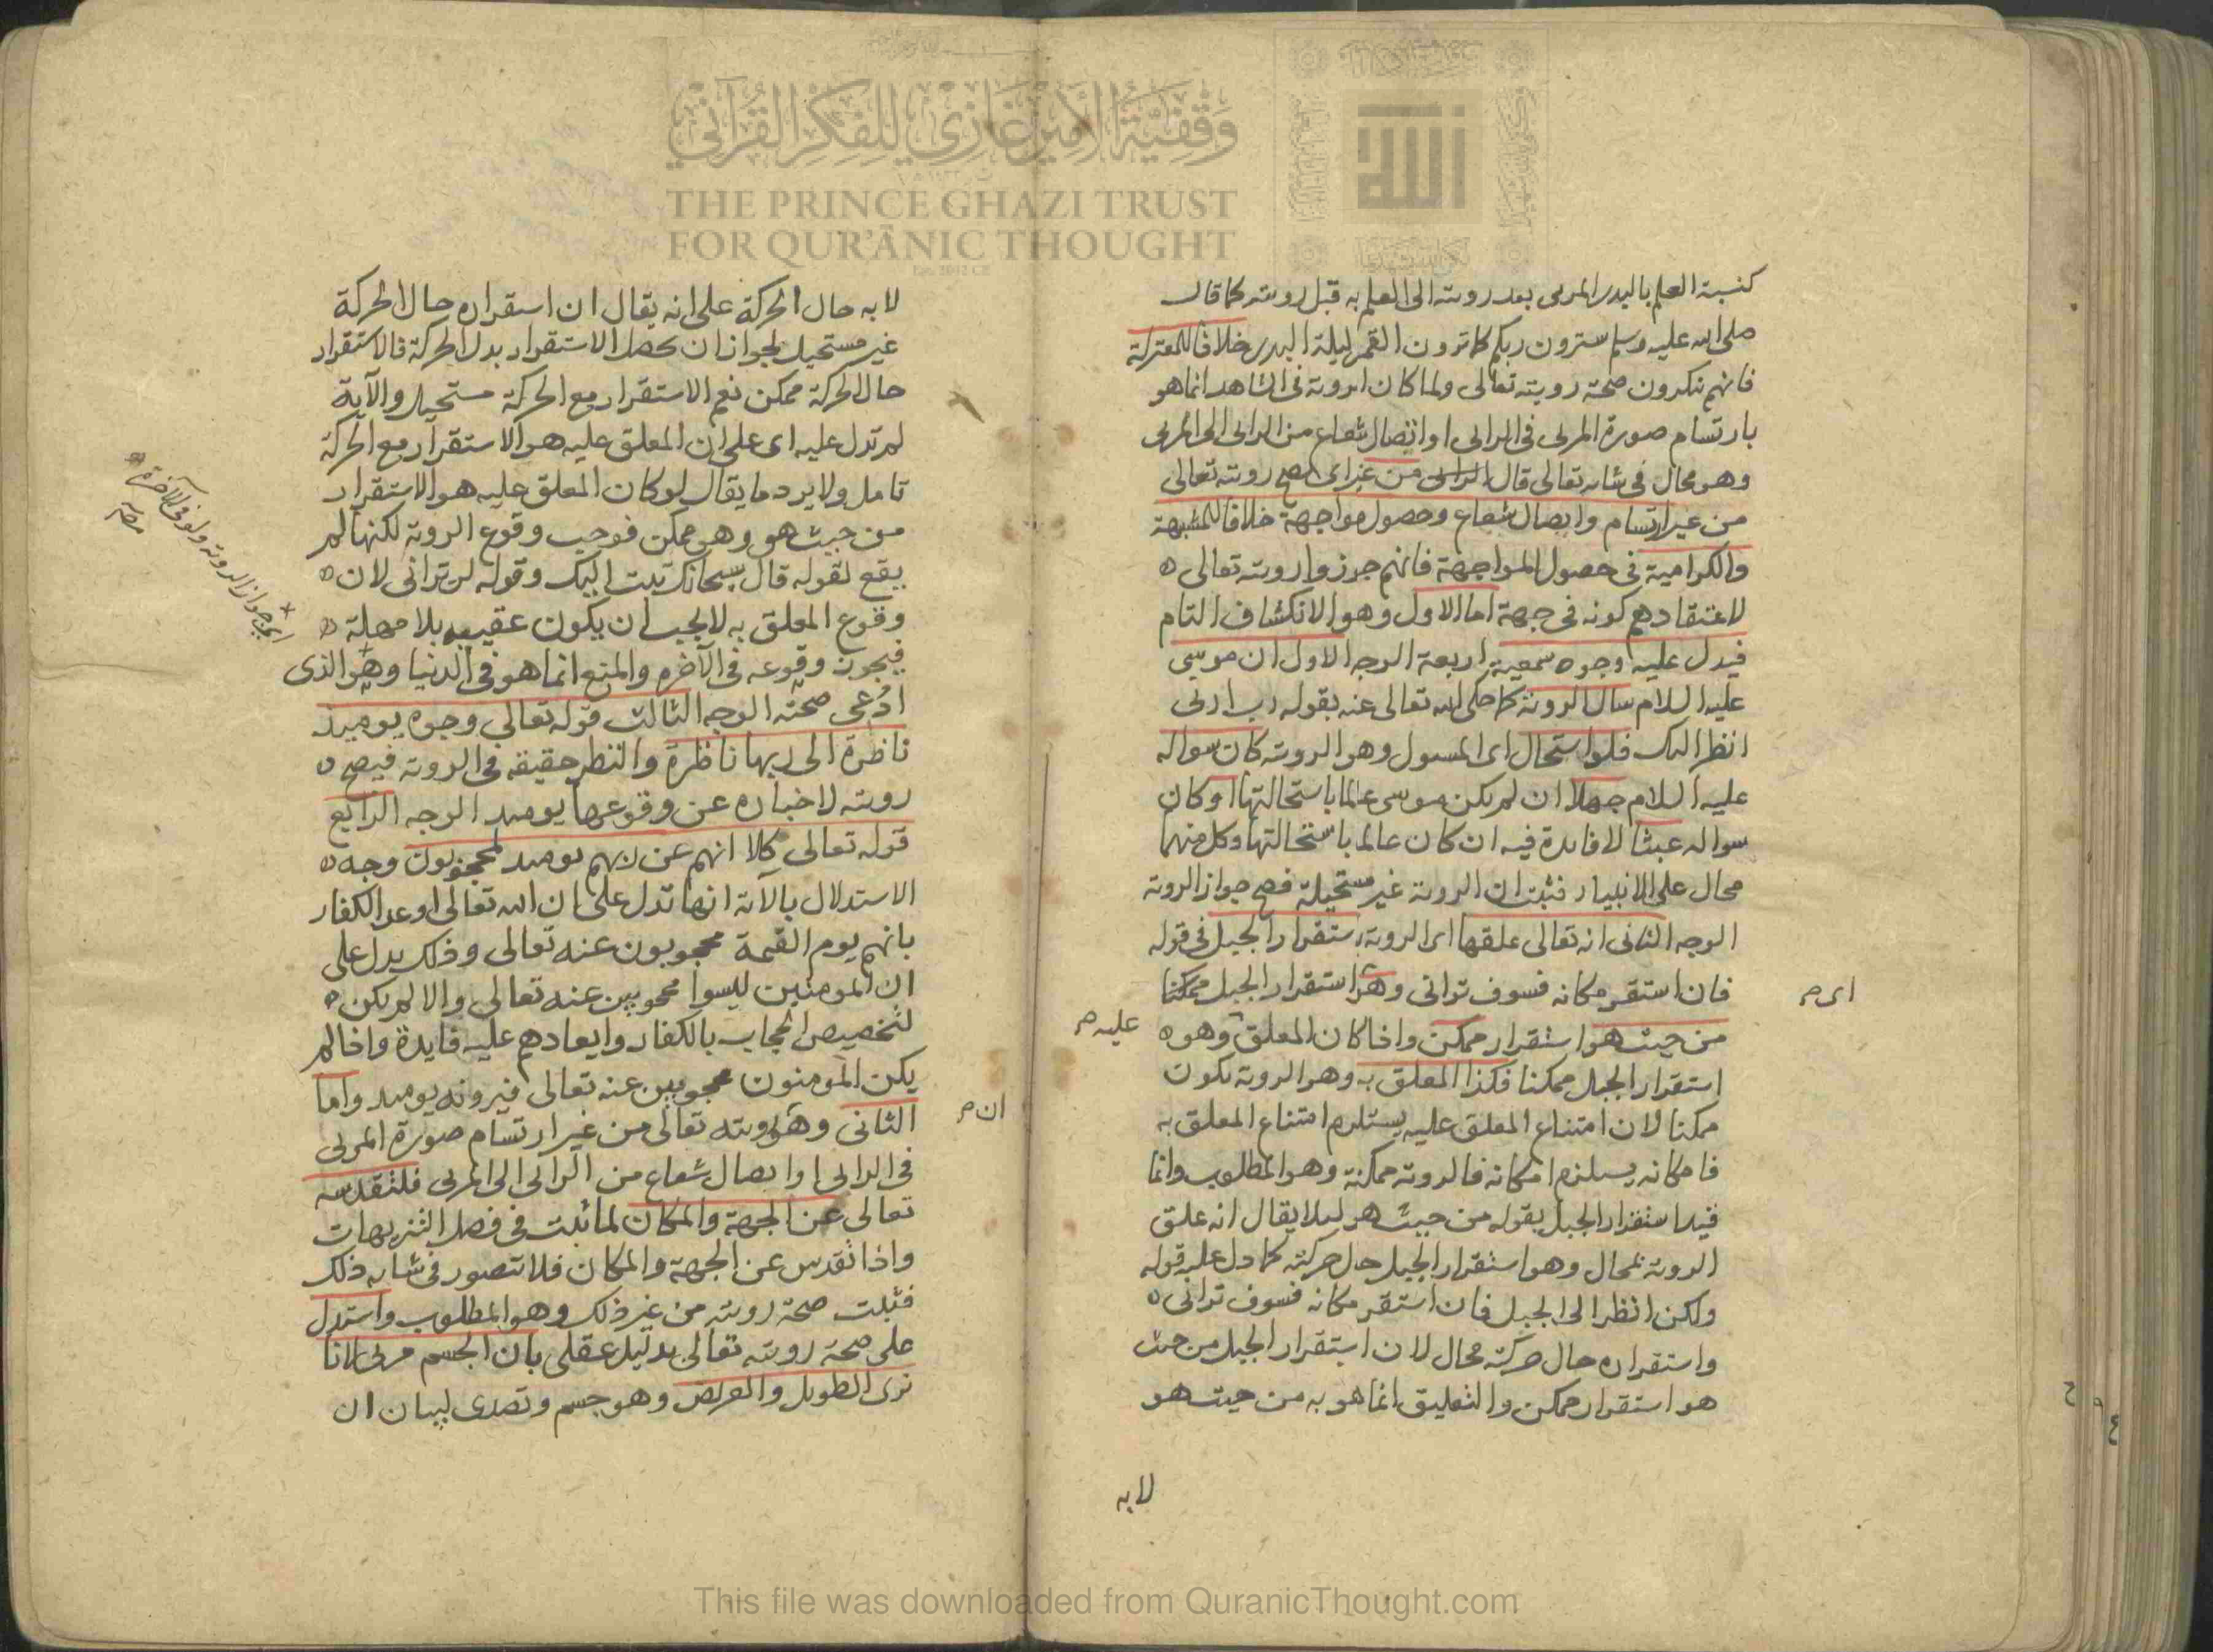 كنسبة العلم بالبدر المرىى بعد رويته الى العلم به قبل رويته كما قال
صلى الله عليه وسلم سترون ربكم كما ترون القمر ليلة البدر خلافا للمعتزلة
فانهم ينكرون صحة رويته تعالى ولما كان الروية فى الشاهد انما هو
بارتسام صورة المرىى فى الراىى او اتصال شعاع من الراىى الى المرىى
وهو محال فى شانه تعالى قال من غير اى يصح رويته تعالى
من غير ارتسام واتصال شعاع وحصول مواجهة خلافا للمشبهة
والكرامية فى حصول المواجهة فانهم جوزوا رويته تعالى
لاعتقادهم كونه فى جهة اما الاول وهو الانكشاف التام
فيدل عليه وجوه سمعية اربعة الوجه الاول ان موسى
عليه السلام سال الروية كما حكى الله تعالى عنه بقوله رب ارنى
انظر اليك فلو استحال اى المسول وهو الروية كان سواله
عليه السلام جهلا ان لم يكن موسى عالما باستحالتها او كان
سواله عبثا لا فايدة فيه ان كان عالما باستحالتها وكل منهما
محال على الانبياء فثبت ان الروية غير مستحيلة فصح جواز الروية
الوجه الثانى انه تعالى علقها اى الروية باستقرار الجبل فى قوله
فان استقر مكانه فسوف ترانى وهو استقرار الجبل ممكنا
اى م
من حيث هو استقرار ممكن واذا كان المعلق وهو
عليه م
استقرار الجبل ممكنا فكذا المعلق به وهو الروية يكون
ممكنا لان امتناع المعلق عليه يستلزم امتناع المعلق به
فامكانه يستلزم امكانه فالروية ممكنة وهو المطلوب وانما
قيد استقرار الجبل بقوله من حيث هو ليلا يقال انه علق
الروية بمحال وهو استقرار الجبل حال حركته كما دل عليه قوله
ولكن انظر الى الجبل فان استقر مكانه فسوف ترانى
واستقراره حال حركته محال لان استقرار الجبل من حيث
هو استقرار ممكن والتعليق انما هو به من حيث هو
لا به
لا به حال الحركة على انه يقال ان استقراره حال الحركة
غير مستحيل لجواز ان يحصل الاستقرار بدل الحركة فالاستقرار
حال الحركة ممكن نعم الاستقرار مع الحركة مستحيل والآية
لم تدل عليه اى على ان المعلق عليه هو الاستقرار مع الحركة
تامل ولا يرد ما يقال لو كان المعلق عليه هو الاستقرار
من حيث هو وهو ممكن فوجب وقوع الروية لكنها لم
يقع لقوله قال سبحانك تبت اليك وقوله لن ترانى لان
وقوع المعلق به لا يجب ان يكون عقيبه بلا مهلة
فيجوز وقوعه فى الآخرة والمنع انما هو فى الدنيا وهو الذى
اى جواز الروية ولو فى الآخرة
ادعى صحته الوجه الثالث قوله تعالى وجوه يوميذ
ناضرة الى ربها ناظرة والنظر حقيقة فى الروية فيصح
رويته لاخباره عن وقوعها يوميذ الوجه الرابع
قوله تعالى كلا انهم عن ربهم يوميذ لمحجوبون وجه
الاستدلال بالآية انها تدل على ان الله تعالى اوعد الكفار
بانهم يوم القيمة محجوبون عنه تعالى وذلك يدل على
ان المومنين ليسوا محجوبين عنه تعالى والا لم يكن
لتخصيص الحجاب بالكفار وايعادهم عليه فايدة واذا لم
يكن المومنون محجوبين عنه تعالى فيرونه يوميذ واما
الثانى وهو رويته تعالى من غير ارتسام صورة المرىى
ان م
فى الراىى او اتصال شعاع من الراىى الى المرىى فلتقدسه
تعالى عن الجهة والمكان لما ثبت فى فصل التنزيهات
واذا تقدس عن الجهة والمكان فلا تتصور فى شانه ذلك
فثبت صحة رويته من غير ذلك وهو المطلوب واستدل
على صحة رويته تعالى بدليل عقلى بان الجسم مرىى لانا
نرى الطويل والعريض وهو جسم وتصدى لبيان ان
وقفية الأمير غازي للفكر القرآني
THE PRINCE GHAZI TRUST
FOR QUR'ĀNIC THOUGHT
Est. 2012 CE
الله
This file was downloaded from QuranicThought.com